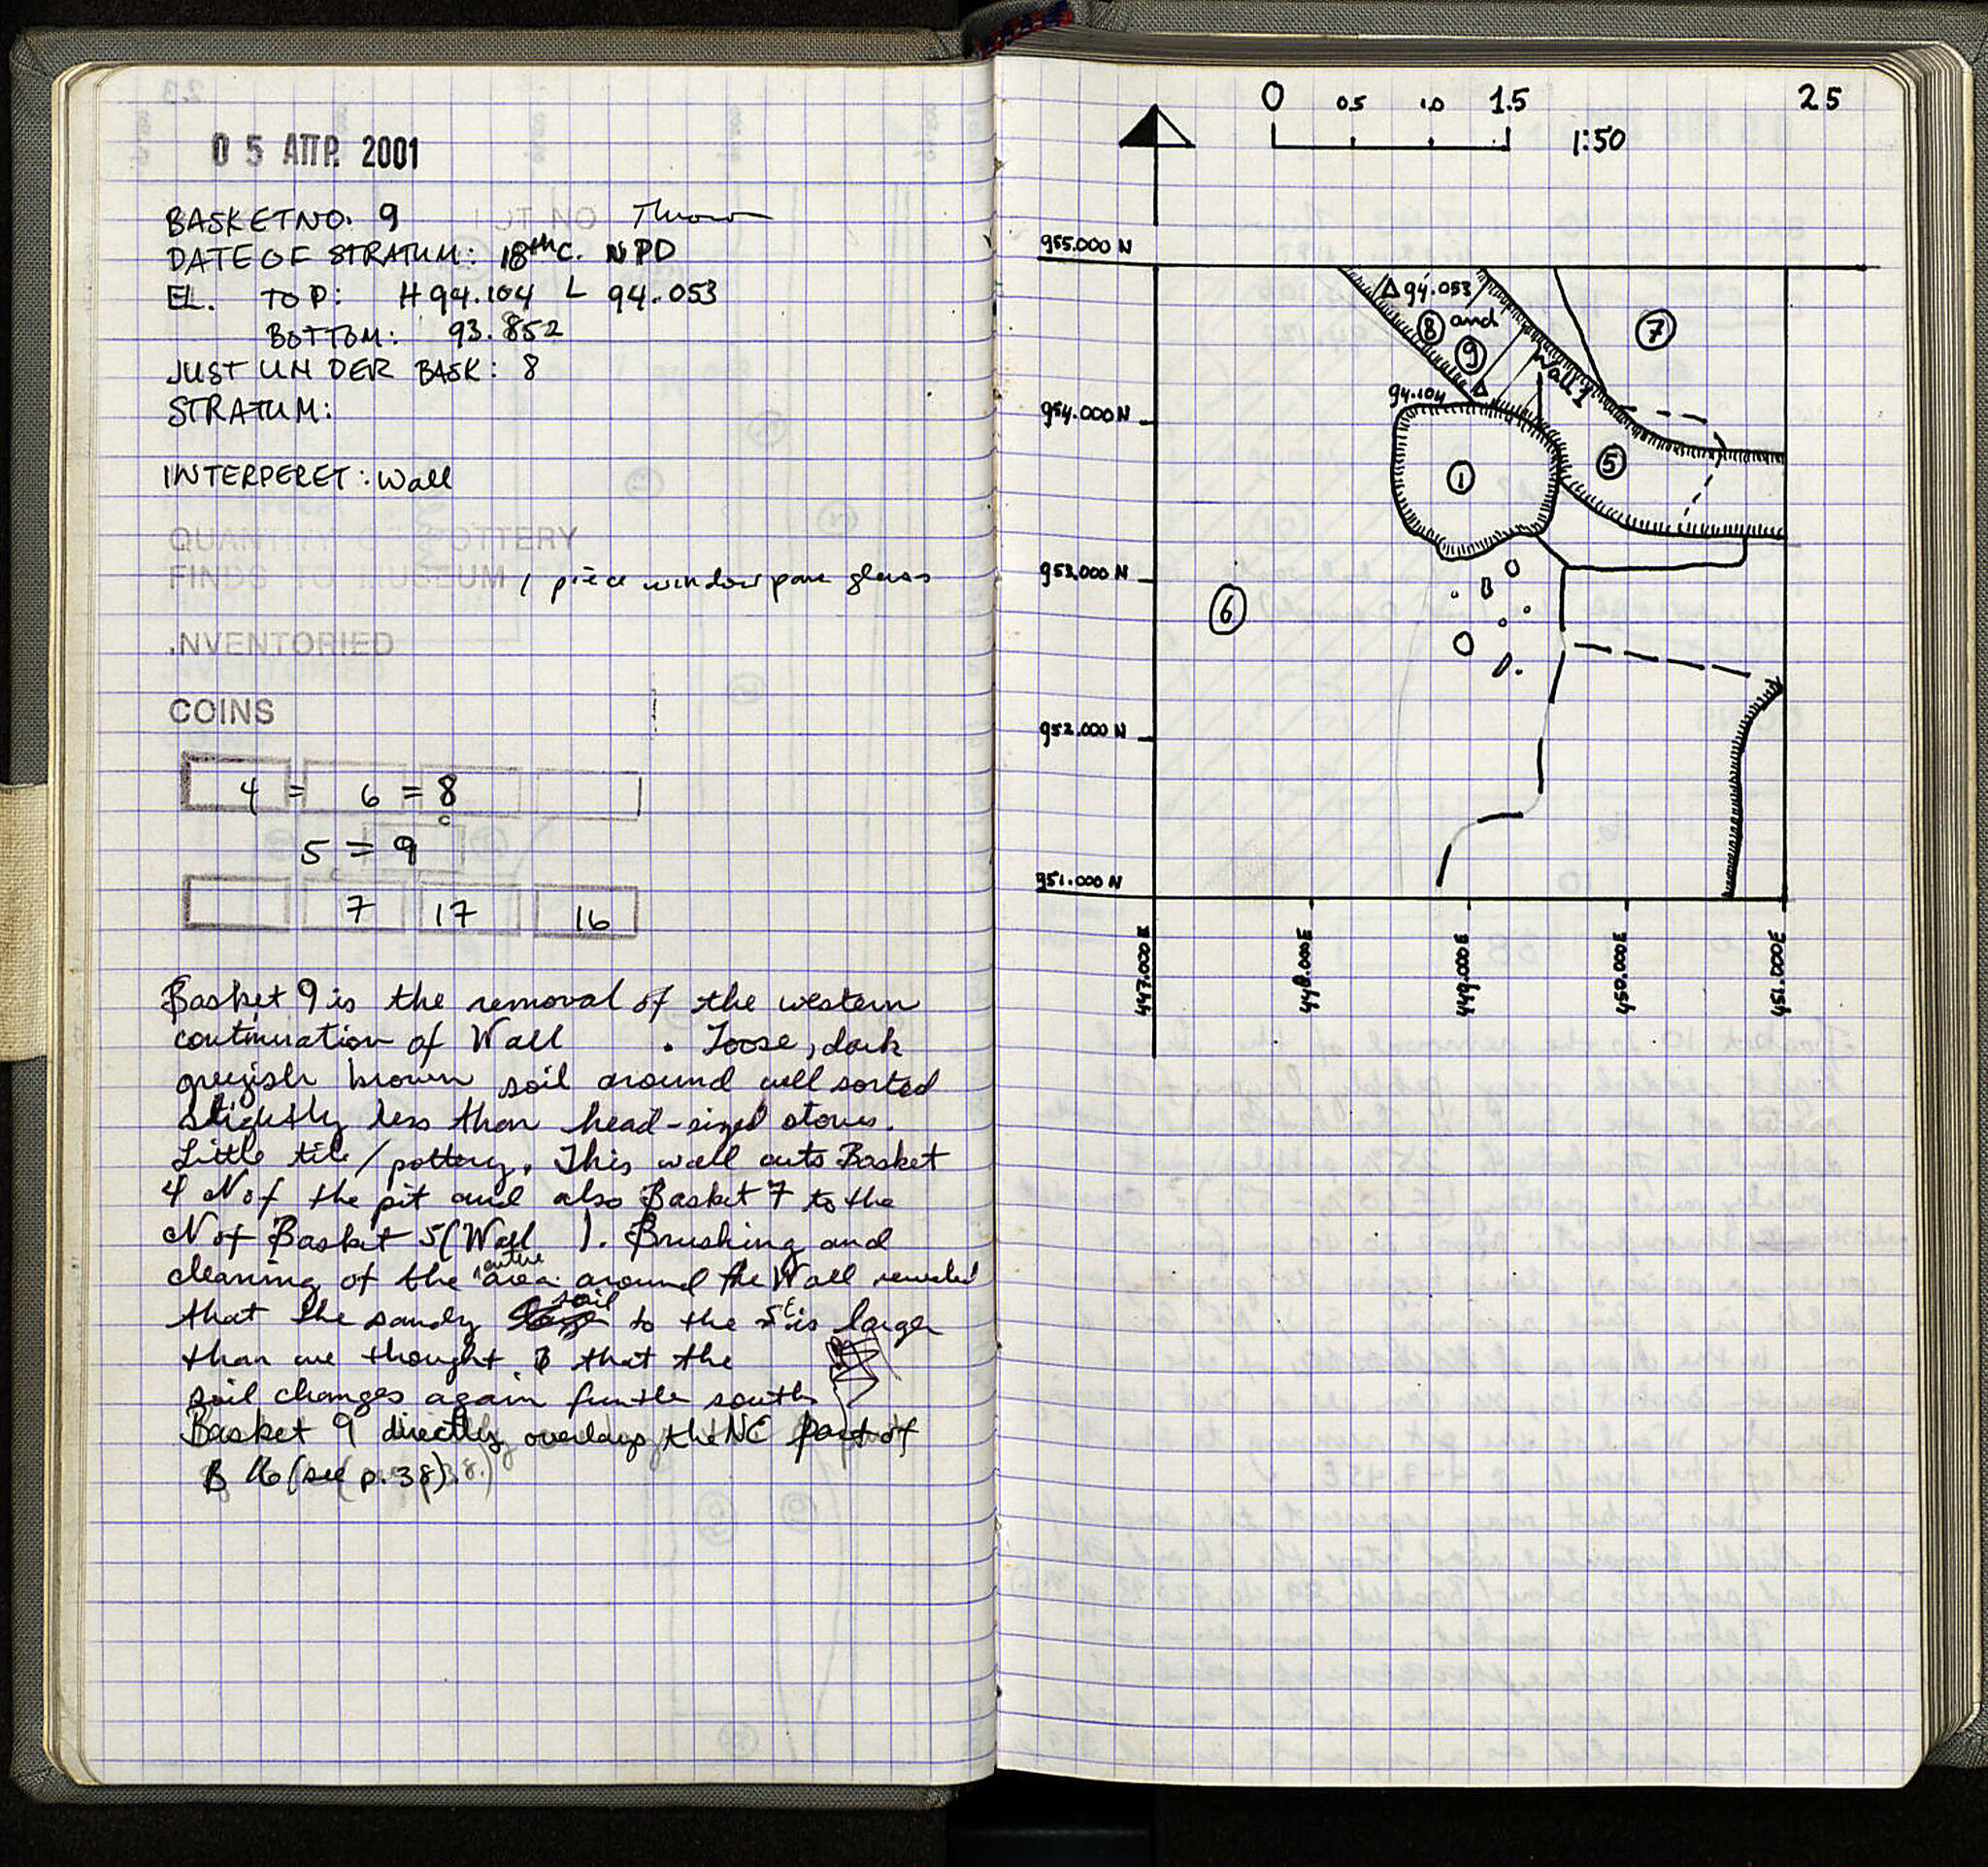 05 ΑΠΡ. 2001
BASKET NO. 9 LOT NO Throw
DATE OF STRATUM: 18th C. NPD
EL. TOP: H 94.104 L 94.053
BOTTOM: 93.852
JUST UNDER BASK: 8
STRATUM:
INTERPERET: Wall
QUANTITY OF POTTERY
FINDS TO MUSEUM 1 piece window pane glass
INVENTORIED
COINS
4 = 6 = 8
5 = 9
7 17 16
Basket 9 is the removal of the western
continuation of Wall . Loose, dark
greyish brown soil around well sorted
slightly less than head-sized stones.
Little tile/pottery. This wall cuts Basket
4 N of the pit and also Basket 7 to the
N of Basket 5 (Wall ). Brushing and
cleaning of the entire area around the Wall revealed
that the sandy soil to the is larger
than we thought & that the
soil changes again further south
Basket 9 directly overlays the NC part of
B 16 (see p. 38).
25
0 0.5 1.0 1.5
1:50
955.000 N
△ 94.053
8 and
9
7
Wall 1
94.104
954.000 N
5
1
953.000 N
6
952.000 N
951.000 N
447.000 E
448.000 E
449.000 E
450.000 E
451.000 E